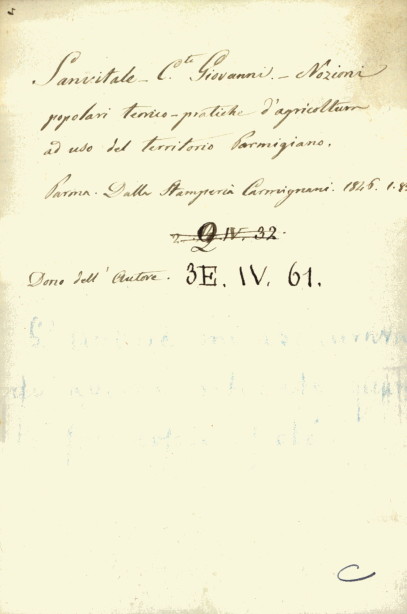 Sanvitale - C.te Giovanni. - Nozioni
popolari teorico-pratiche d'agricoltura
ad uso del territorio Parmigiano.
Parma. Dalla Stamperia Carmignani. 1846.
2. Q. IV. 32.
Dono dell' Autore. 3E. IV. 61.
C